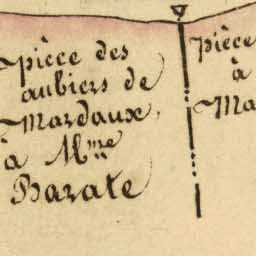 pièce des
aubiers de
Mardaux,
à Mme
Barate
pièce
à
Ma